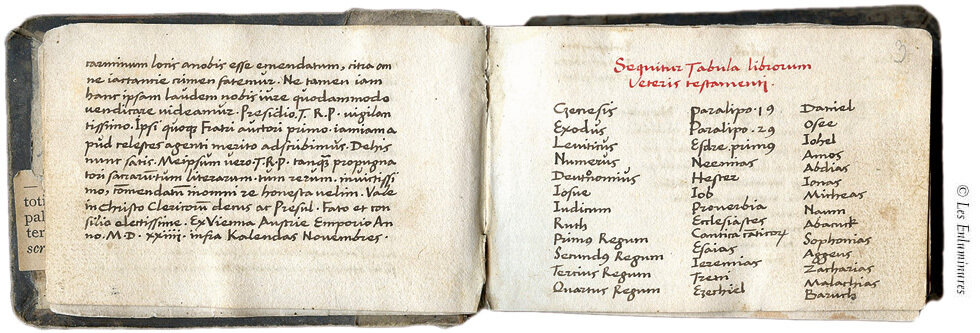 carminum locis a nobis esse emendatum, citra om
ne iactantie crimen fatemur. Ne tamen iam
hanc ipsam laudem nobis iure quodammodo
vendicare videamur. Presidio. T. R. P. vigilan
tissimo. Ipsi quoq; Fratri auctori primo. iamiam a
pud celestes agenti merito adscribimus. De his
nunc satis. Meipsum vero. T. R. P. tanq̃ propugna
tori sacrarum literarum. tum rerum. invictissi
mo, com̄endatū in omni re honesta velim. Vale
in Christo Clericorū decus ac Presul. Fato et con
silio electissime. Ex Vienna Austrie Emporio An
no. M. D. xxiiii. infra Kalendas Novembres.
3
Sequitur Tabula librorum
Veteris testamenti.
Genesis
Exodus
Leviticus
Numerus
Deut̄onomius
Iosue
Iudicum
Ruth
Primus Regum
Secundus Regum
Tercius Regum
Quartus Regum
Paralipo. 19
Paralipo. 29
Esdre. primus
Neemias
Hester
Iob
Proverbia
Ecclesiastes
Cantica cāticorū
Esaias
Ieremias
Treni
Ezechiel
Daniel
Osee
Iohel
Amos
Abdias
Ionas
Micheas
Naum
Abacuk
Sophonias
Aggeus
Zacharias
Malachias
Baruch
toti
pal
ter
scr
© Les Enluminures